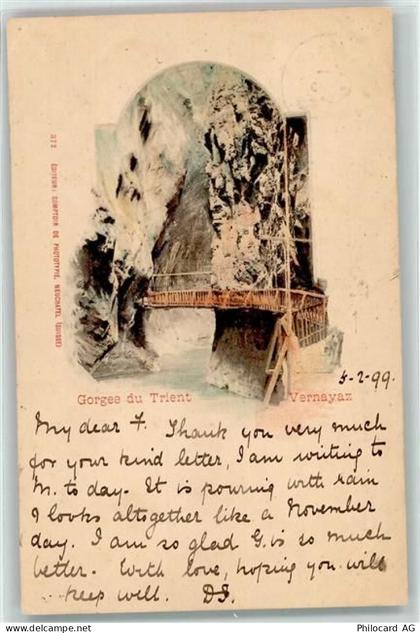 372 EDITEUR: COMPTOIR DE PHOTOTYPIE, NEUCHATEL (SUISSE)
Gorges du Trient
Vernayaz
5-2-99.
My dear F. Thank you very much
for your kind letter, I am writing to
M. to day. It is pouring with rain
I looks altogether like a November
day. I am so glad G. is so much
better. With love, hoping you will
keep well. DS.
Philocard AG
delcampe.net